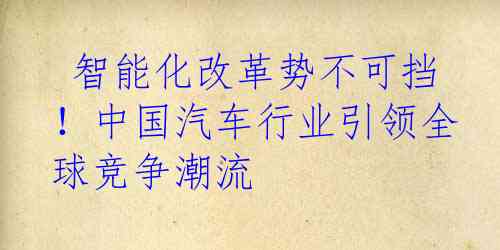 智能化改革势不可挡
！中国汽车行业引领全
球竞争潮流